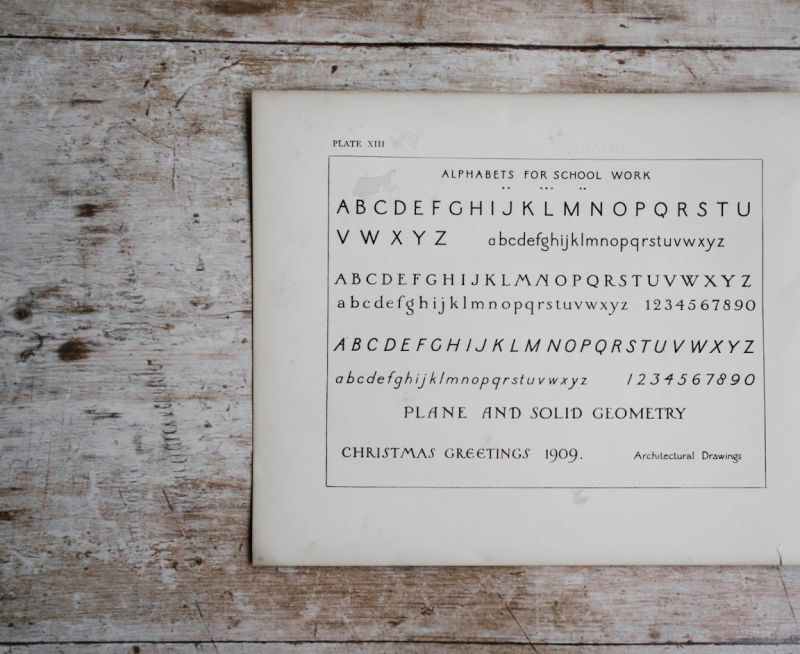 PLATE XIII
ALPHABETS FOR SCHOOL WORK
A B C D E F G H I J K L M N O P Q R S T U
V W X Y Z a b c d e f g h i j k l m n o p q r s t u v w x y z
A B C D E F G H I J K L M N O P Q R S T U V W X Y Z
a b c d e f g h i j k l m n o p q r s t u v w x y z 1 2 3 4 5 6 7 8 9 0
A B C D E F G H I J K L M N O P Q R S T U V W X Y Z
a b c d e f g h i j k l m n o p q r s t u v w x y z 1 2 3 4 5 6 7 8 9 0
PLANE AND SOLID GEOMETRY
CHRISTMAS GREETINGS 1909. Architectural Drawings